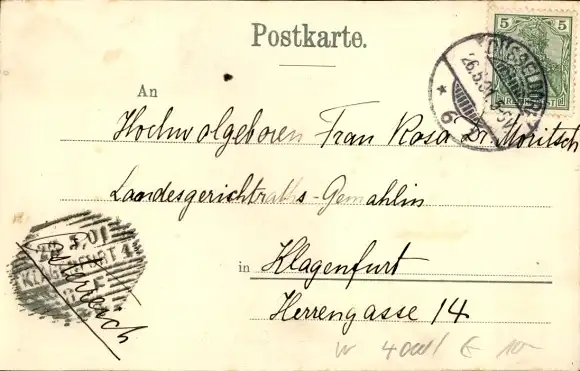 Postkarte.
5 5
DÜSSELDORF
26.5.01
* 6
REICHSPOST
An
Hochwolgeboren Frau Rosa Dr. Moritsch
Landesgerichtraths-Gemahlin
in Klagenfurt
Herrengasse 14
5 01
KLAGENFURT 1
Österreich